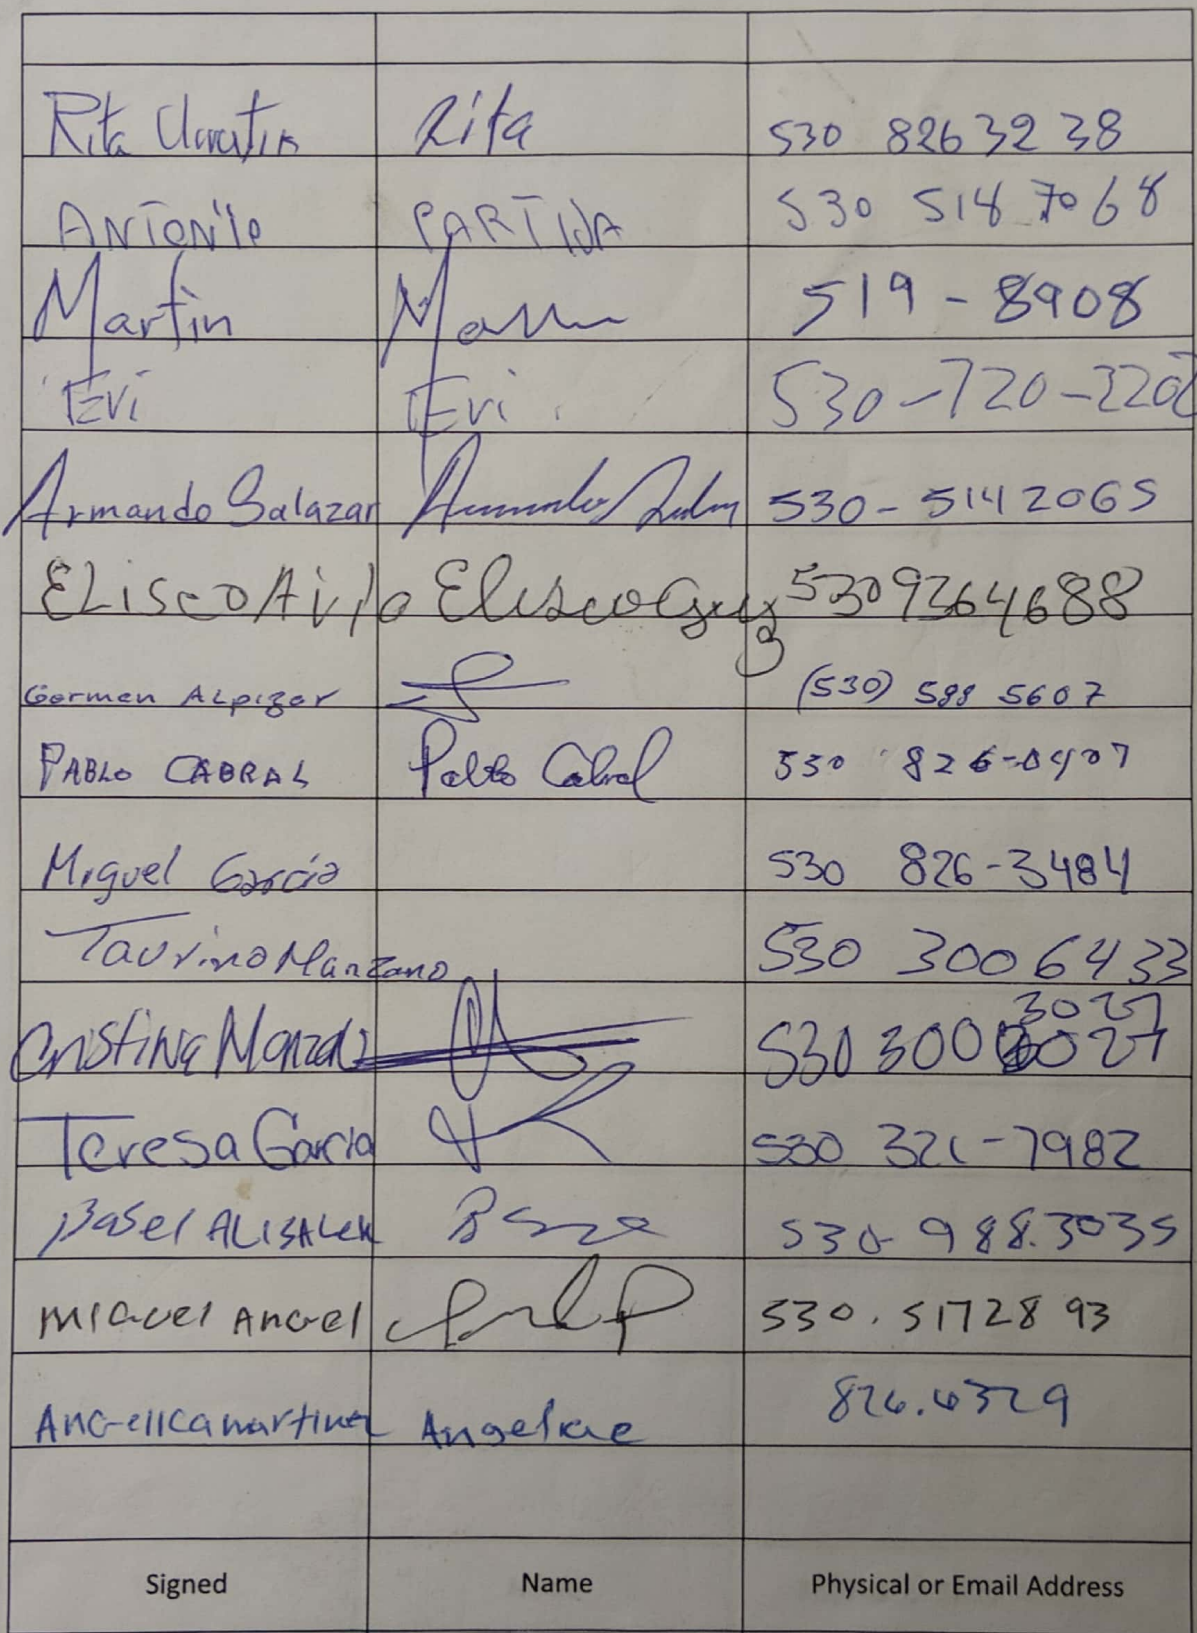 Rita Rita 530 826 32 38
ANTONIO PARTIDA 530 518 7068
Martin 519-8908
Evi Evi 530-720-2202
Armando Salazar 530-514 2065
ELiseo Eliseo 5309364688
German ALpizar (530) 588 5607
PABLO CABRAL Pablo Cabral 530 826-0407
Miguel Garcia 530 826-3484
Taurino Manzano 530 300 6433
3027
Cristina 530 300 3027
Teresa Garcia 530 321-7982
Basel 530-988.3035
MIGUEL ANGEL 530.5172893
ANGELICA martinez Angelicae 826.4329
Signed Name Physical or Email Address